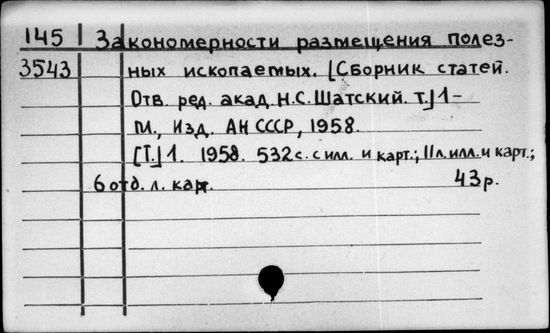 145 Закономерности размещения полез-
3543 ных ископаемых. [Сборник статей.
Отв. ред. акад. Н.С. Шатский. т.] 1-
М., Изд. АН СССР, 1958.
[Т.] 1. 1958. 532 с. с илл. и карт.; 11 л. илл. и карт.;
6 отд. л. карт. 43 р.